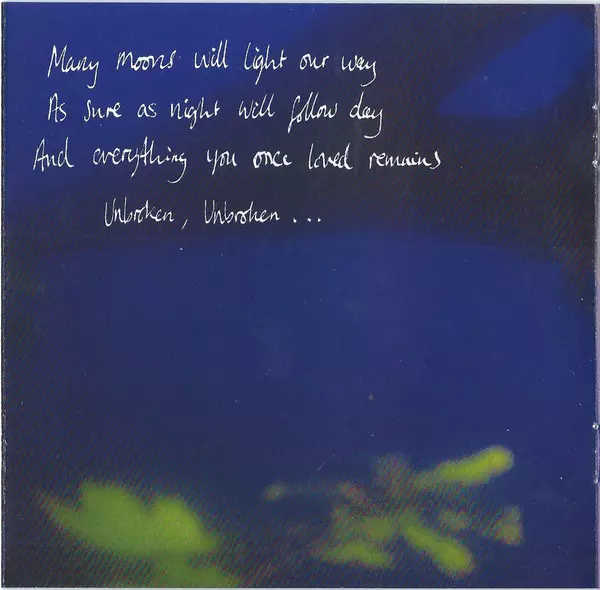 Many moons will light our way
As sure as night will follow day
And everything you once loved remains
Unbroken, Unbroken ...